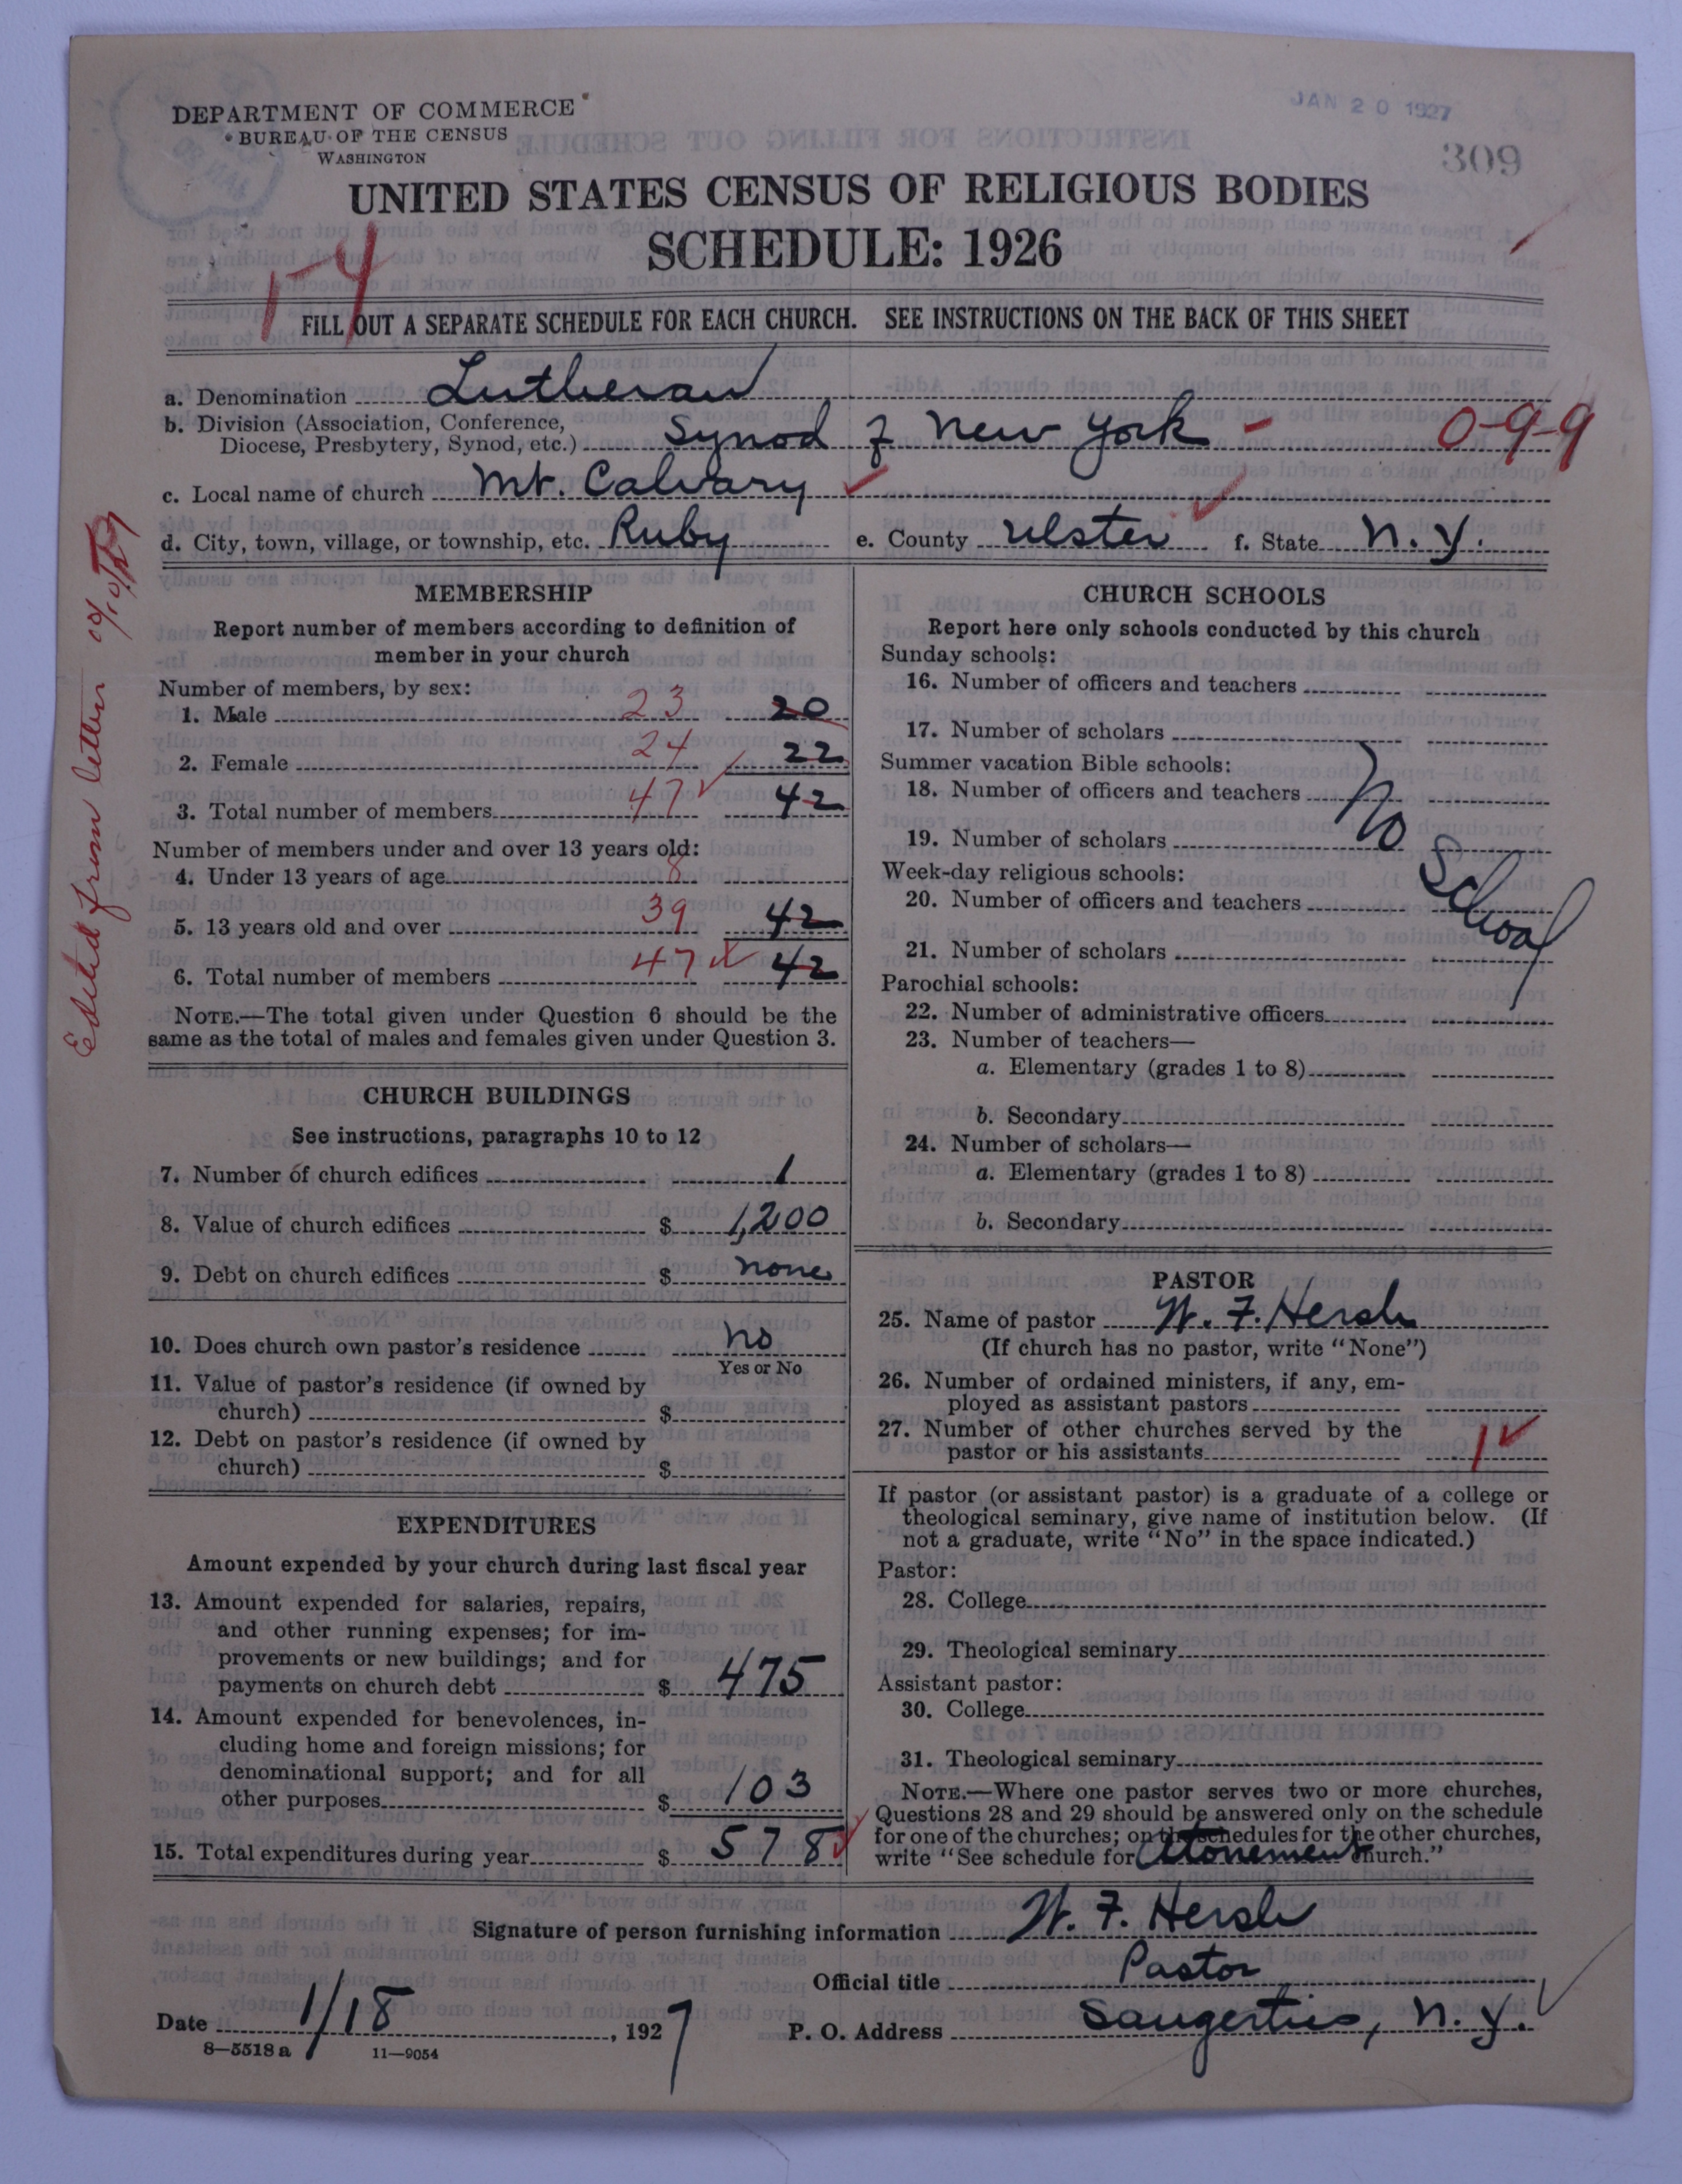 JAN 20 1927
309
DEPARTMENT OF COMMERCE
BUREAU OF THE CENSUS
WASHINGTON
UNITED STATES CENSUS OF RELIGIOUS BODIES
SCHEDULE: 1926
FILL OUT A SEPARATE SCHEDULE FOR EACH CHURCH. SEE INSTRUCTIONS ON THE BACK OF THIS SHEET
a. Denomination Lutheran
b. Division (Association, Conference,
Diocese, Presbytery, Synod, etc.) Synod of New York - 0-9-9
c. Local name of church Mt. Calvary
d. City, town, village, or township, etc. Ruby e. County Ulster f. State N.Y.
Edited from letter
MEMBERSHIP
Report number of members according to definition of
member in your church
Number of members, by sex:
1. Male 23 20
2. Female 24 22
3. Total number of members 47 42
Number of members under and over 13 years old:
4. Under 13 years of age 8
5. 13 years old and over 39 42
6. Total number of members 47 42
NOTE.—The total given under Question 6 should be the
same as the total of males and females given under Question 3.
CHURCH BUILDINGS
See instructions, paragraphs 10 to 12
7. Number of church edifices 1
8. Value of church edifices $ 1,200
9. Debt on church edifices $ none
10. Does church own pastor's residence no
Yes or No
11. Value of pastor's residence (if owned by
church) $
12. Debt on pastor's residence (if owned by
church) $
EXPENDITURES
Amount expended by your church during last fiscal year
13. Amount expended for salaries, repairs,
and other running expenses; for im-
provements or new buildings; and for
payments on church debt $ 475
14. Amount expended for benevolences, in-
cluding home and foreign missions; for
denominational support; and for all
other purposes $ 103
15. Total expenditures during year $ 578
CHURCH SCHOOLS
Report here only schools conducted by this church
Sunday schools:
16. Number of officers and teachers
17. Number of scholars
Summer vacation Bible schools:
18. Number of officers and teachers
19. Number of scholars
No School
Week-day religious schools:
20. Number of officers and teachers
21. Number of scholars
Parochial schools:
22. Number of administrative officers
23. Number of teachers—
a. Elementary (grades 1 to 8)
b. Secondary
24. Number of scholars—
a. Elementary (grades 1 to 8)
b. Secondary
PASTOR
25. Name of pastor W. F. Hersh
(If church has no pastor, write "None")
26. Number of ordained ministers, if any, em-
ployed as assistant pastors
27. Number of other churches served by the
pastor or his assistants 1
If pastor (or assistant pastor) is a graduate of a college or
theological seminary, give name of institution below. (If
not a graduate, write "No" in the space indicated.)
Pastor:
28. College
29. Theological seminary
Assistant pastor:
30. College
31. Theological seminary
NOTE.—Where one pastor serves two or more churches,
Questions 28 and 29 should be answered only on the schedule
for one of the churches; on the schedules for the other churches,
write "See schedule for Atonement Church."
Signature of person furnishing information W. F. Hersh
Official title Pastor
Date 1/18, 1927 P. O. Address Saugerties, N.Y.
8—5518a 11—9054